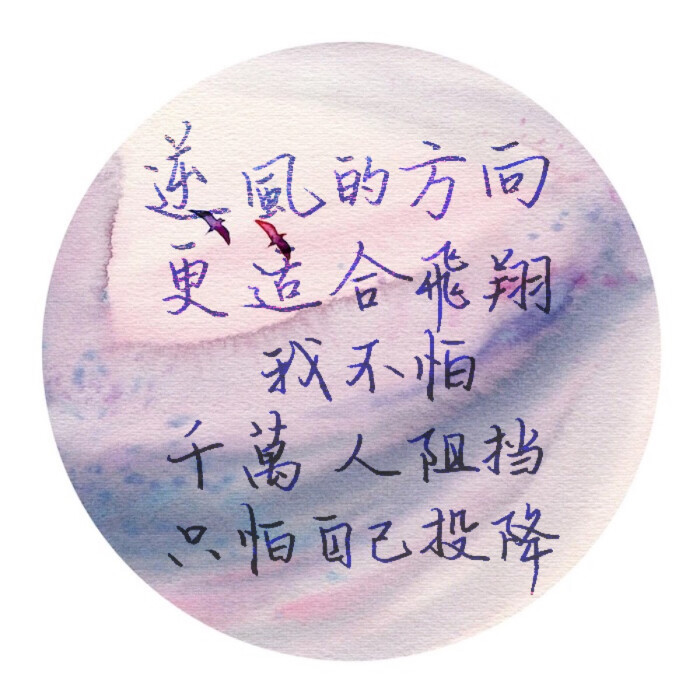 逆風的方向
更适合飛翔
我不怕
千萬人阻挡
只怕自己投降